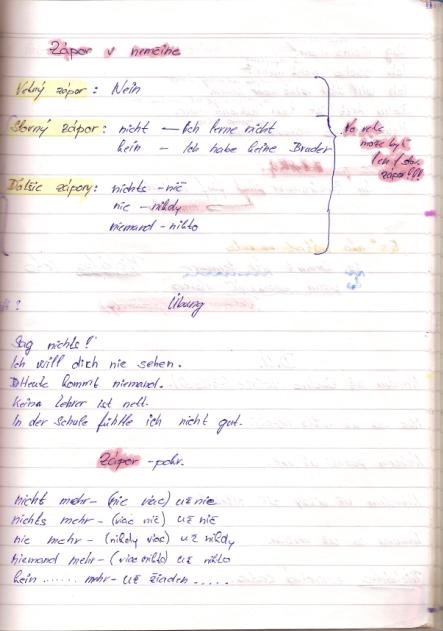 Zápor v nemčine
Vetný zápor: Nein
Slovný zápor: nicht – Ich lerne nicht
kein – Ich habe keine Bruder
Vo vete
može byť
len 1 slov.
zápor!!!
Ďalšie zápory: nichts – nič
nie – nikdy
niemand – nikto
Übung
Sag nichts!
Ich will dich nie sehen.
Heute kommt niemand.
Keina Lehrer ist nett.
In der Schule fühlte ich nicht gut.
Zápor – pokr.
nicht mehr – (nie viac) už nie
nichts mehr – (viac nič) už nič
nie mehr – (nikdy viac) už nikdy
niemand mehr – (viac nikto) už nikto
kein ...... mehr – už žiaden .....